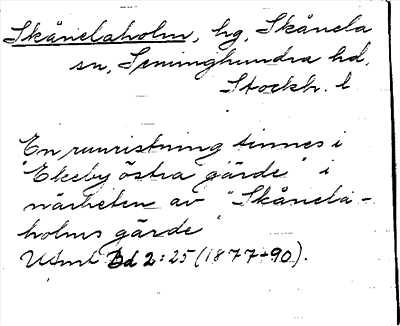 Skånelaholm, hg, Skånela
sn, Seminghundra hd,
Stockh. l
En runristning finnes i
"Ekeby östra gärde" i
närheten av "Skånela-
holms gärde"
Usmt Bd 2:25 (1877-90).